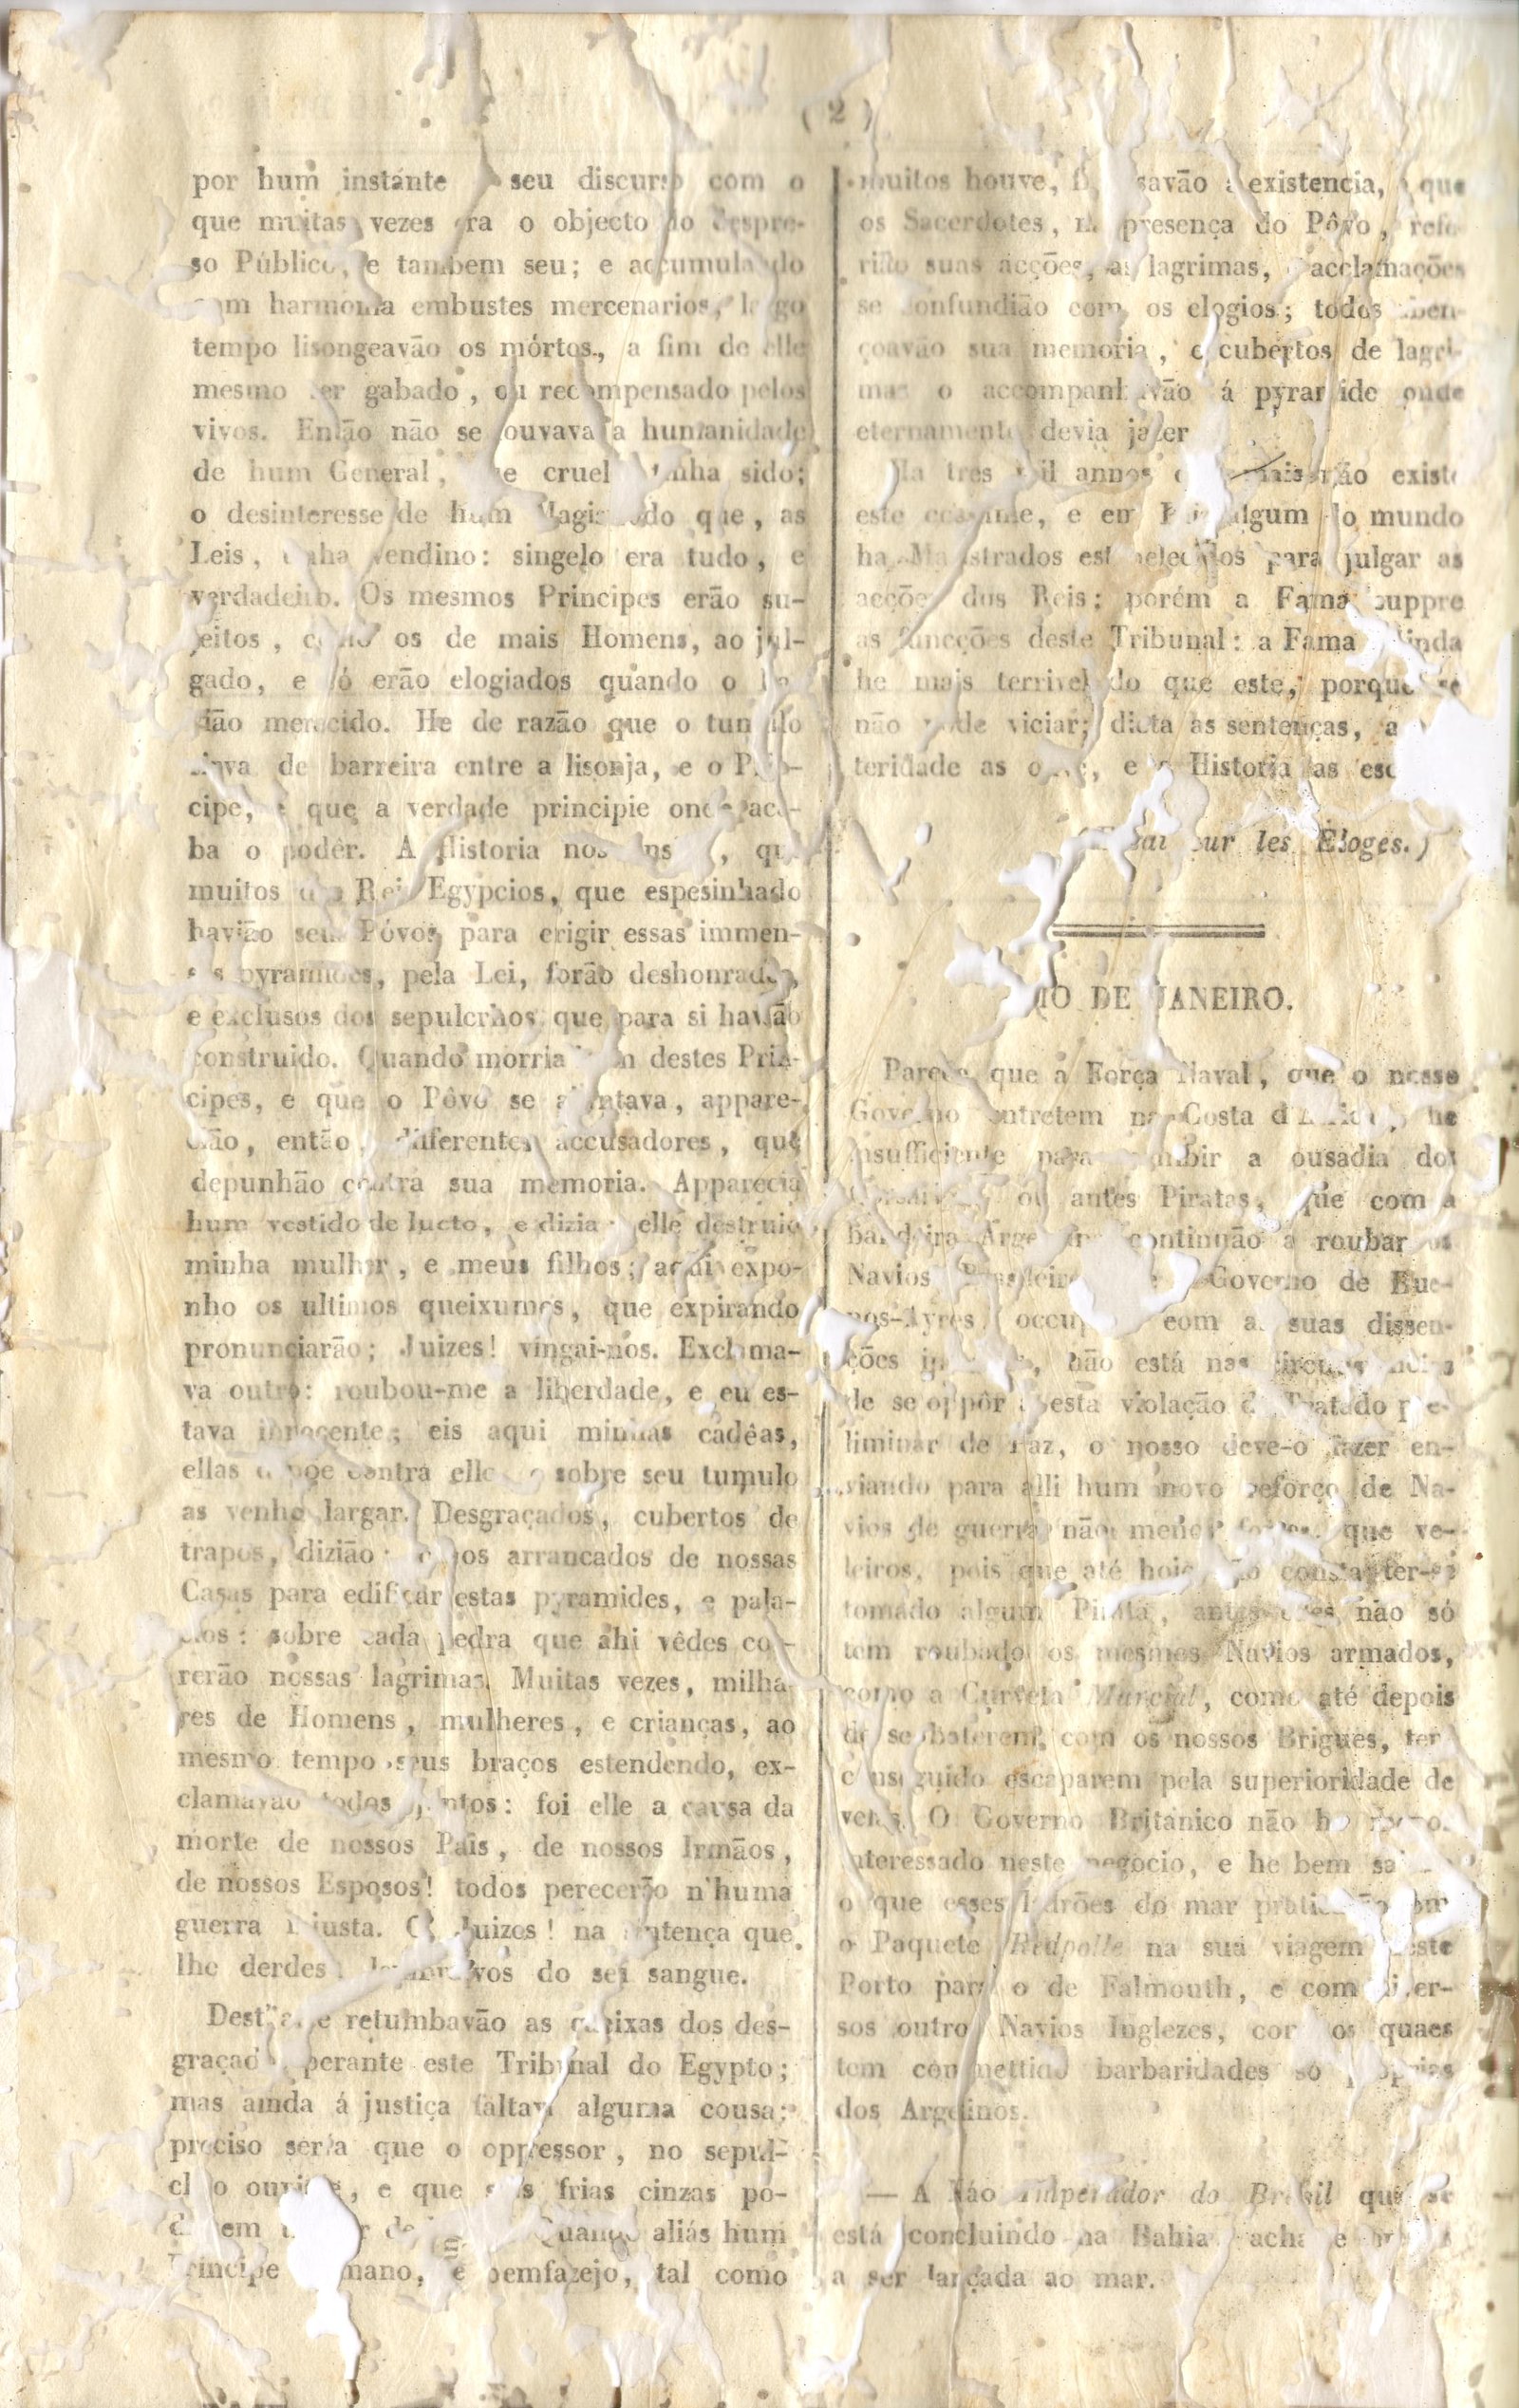 ( 2 )
por hum instante o seu discurso com o
que muitas vezes era o objecto do despre-
so Público, e tambem seu; e accumulando
com harmonia embustes mercenarios, longo
tempo lisongeavão os mórtos, a fim de elle
mesmo ser gabado, ou recompensado pelos
vivos. Então não se louvava a humanidade
de hum General, que cruel tinha sido;
o desinteresse de hum Magistrado que, as
Leis, tinha vendino: singelo era tudo, e
verdadeiro. Os mesmos Principes erão su-
jeitos, como os de mais Homens, ao jul-
gado, e só erão elogiados quando o ha-
vião merecido. He de razão que o tumulo
sirva de barreira entre a lisonja, e o Prin-
cipe, e que a verdade principie onde aca-
ba o podêr. A Historia nos , que
muitos dos Reis Egypcios, que espesinhado
havião seus Póvos para erigir essas immen-
sas pyramides, pela Lei, forão deshonrados,
e exclusos dos sepulcrhos que para si havião
construido. Quando morria hum destes Prin-
cipes, e que o Pôvo se ajuntava, appare-
cião, então, differentes accusadores, que
depunhão contra sua memoria. Apparecia
hum vestido de lucto, e dizia: elle destruio
minha mulher, e meus filhos; aqui expo-
nho os ultimos queixumes, que expirando
pronunciarão; Juizes! vingai-nos. Exclama-
va outro: roubou-me a liberdade, e eu es-
tava innocente; eis aqui minhas cadêas,
ellas depõe contra elle, e sobre seu tumulo
as venho largar. Desgraçados, cubertos de
trapos, dizião: fomos arrancados de nossas
Casas para edificar estas pyramides, e pala-
cios: sobre cada pedra que ahi vêdes cor-
rerão nossas lagrimas. Muitas vezes, milha-
res de Homens, mulheres, e crianças, ao
mesmo tempo seus braços estendendo, ex-
clamavão todos juntos: foi elle a causa da
morte de nossos Pais, de nossos Irmãos,
de nossos Esposos! todos perecerão n'huma
guerra injusta. Oh Juizes! na sentença que
lhe derdes, lembrai-vos do seu sangue.
Dest'arte retumbavão as queixas dos des-
graçados perante este Tribunal do Egypto;
mas ainda á justiça faltava alguma cousa:
preciso seria que o oppressor, no sepul-
chro ouvisse, e que suas frias cinzas po-
dessem Quando aliás hum
Principe humano, e bemfazejo, tal como
muitos houve, existencia, e que
os Sacerdotes, na presença do Pôvo, refe-
rião suas acções, as lagrimas, e acclamações
se confundião com os elogios; todos aben-
çoavão sua memoria, e cubertos de lagri-
mas o accompanhavão á pyramide onde
eternamente devia jazer
Ha tres mil annos que mais não existe
este costume, e em Paiz algum do mundo
ha Magistrados estabelecidos para julgar as
acções dos Reis; porém a Fama suppre
as funcções deste Tribunal: a Fama ainda
he mais terrivel do que este, porque se
não póde viciar; dicta as sentenças, a
teridade as ouve, e a Historia as
(Essai sur les Éloges.)
RIO DE JANEIRO.
Parece, que a Força Naval, que o nosso
Governo entretem na Costa d'Africa, he
insufficiente para cohibir a ousadia dos
Corsarios, ou antes Piratas, que com a
bandeira Argentina continuão a roubar os
Navios Brasileiros. Se o Governo de Bue-
nos-Ayres, occupado com as suas dissen-
ções internas, não está nas circumstancias
de se oppôr a esta violação do Tratado pre-
liminar de Paz, o nosso deve-o fazer en-
viando para alli hum novo reforço de Na-
vios de guerra, não menos fortes, que ve-
leiros, pois que até hoje não consta ter-se
tomado algum Pirata, antes eles não só
tem roubado os mesmos Navios armados,
como a Curveta Marcial, como até depois
de se baterem com os nossos Brigues, tem
conseguido escaparem pela superioridade de
velas. O Governo Britanico não he menos
interessado neste negocio, e he bem sabido
o que esses ladrões do mar praticarão com
o Paquete Redpolle na sua viagem deste
Porto para o de Falmouth, e com diver-
sos outros Navios Inglezes, com os quaes
tem commettido barbaridades só proprias
dos Argelinos.
— A Náo Imperador do Brasil que se
está concluindo na Bahia, acha-se
a ser lançada ao mar.